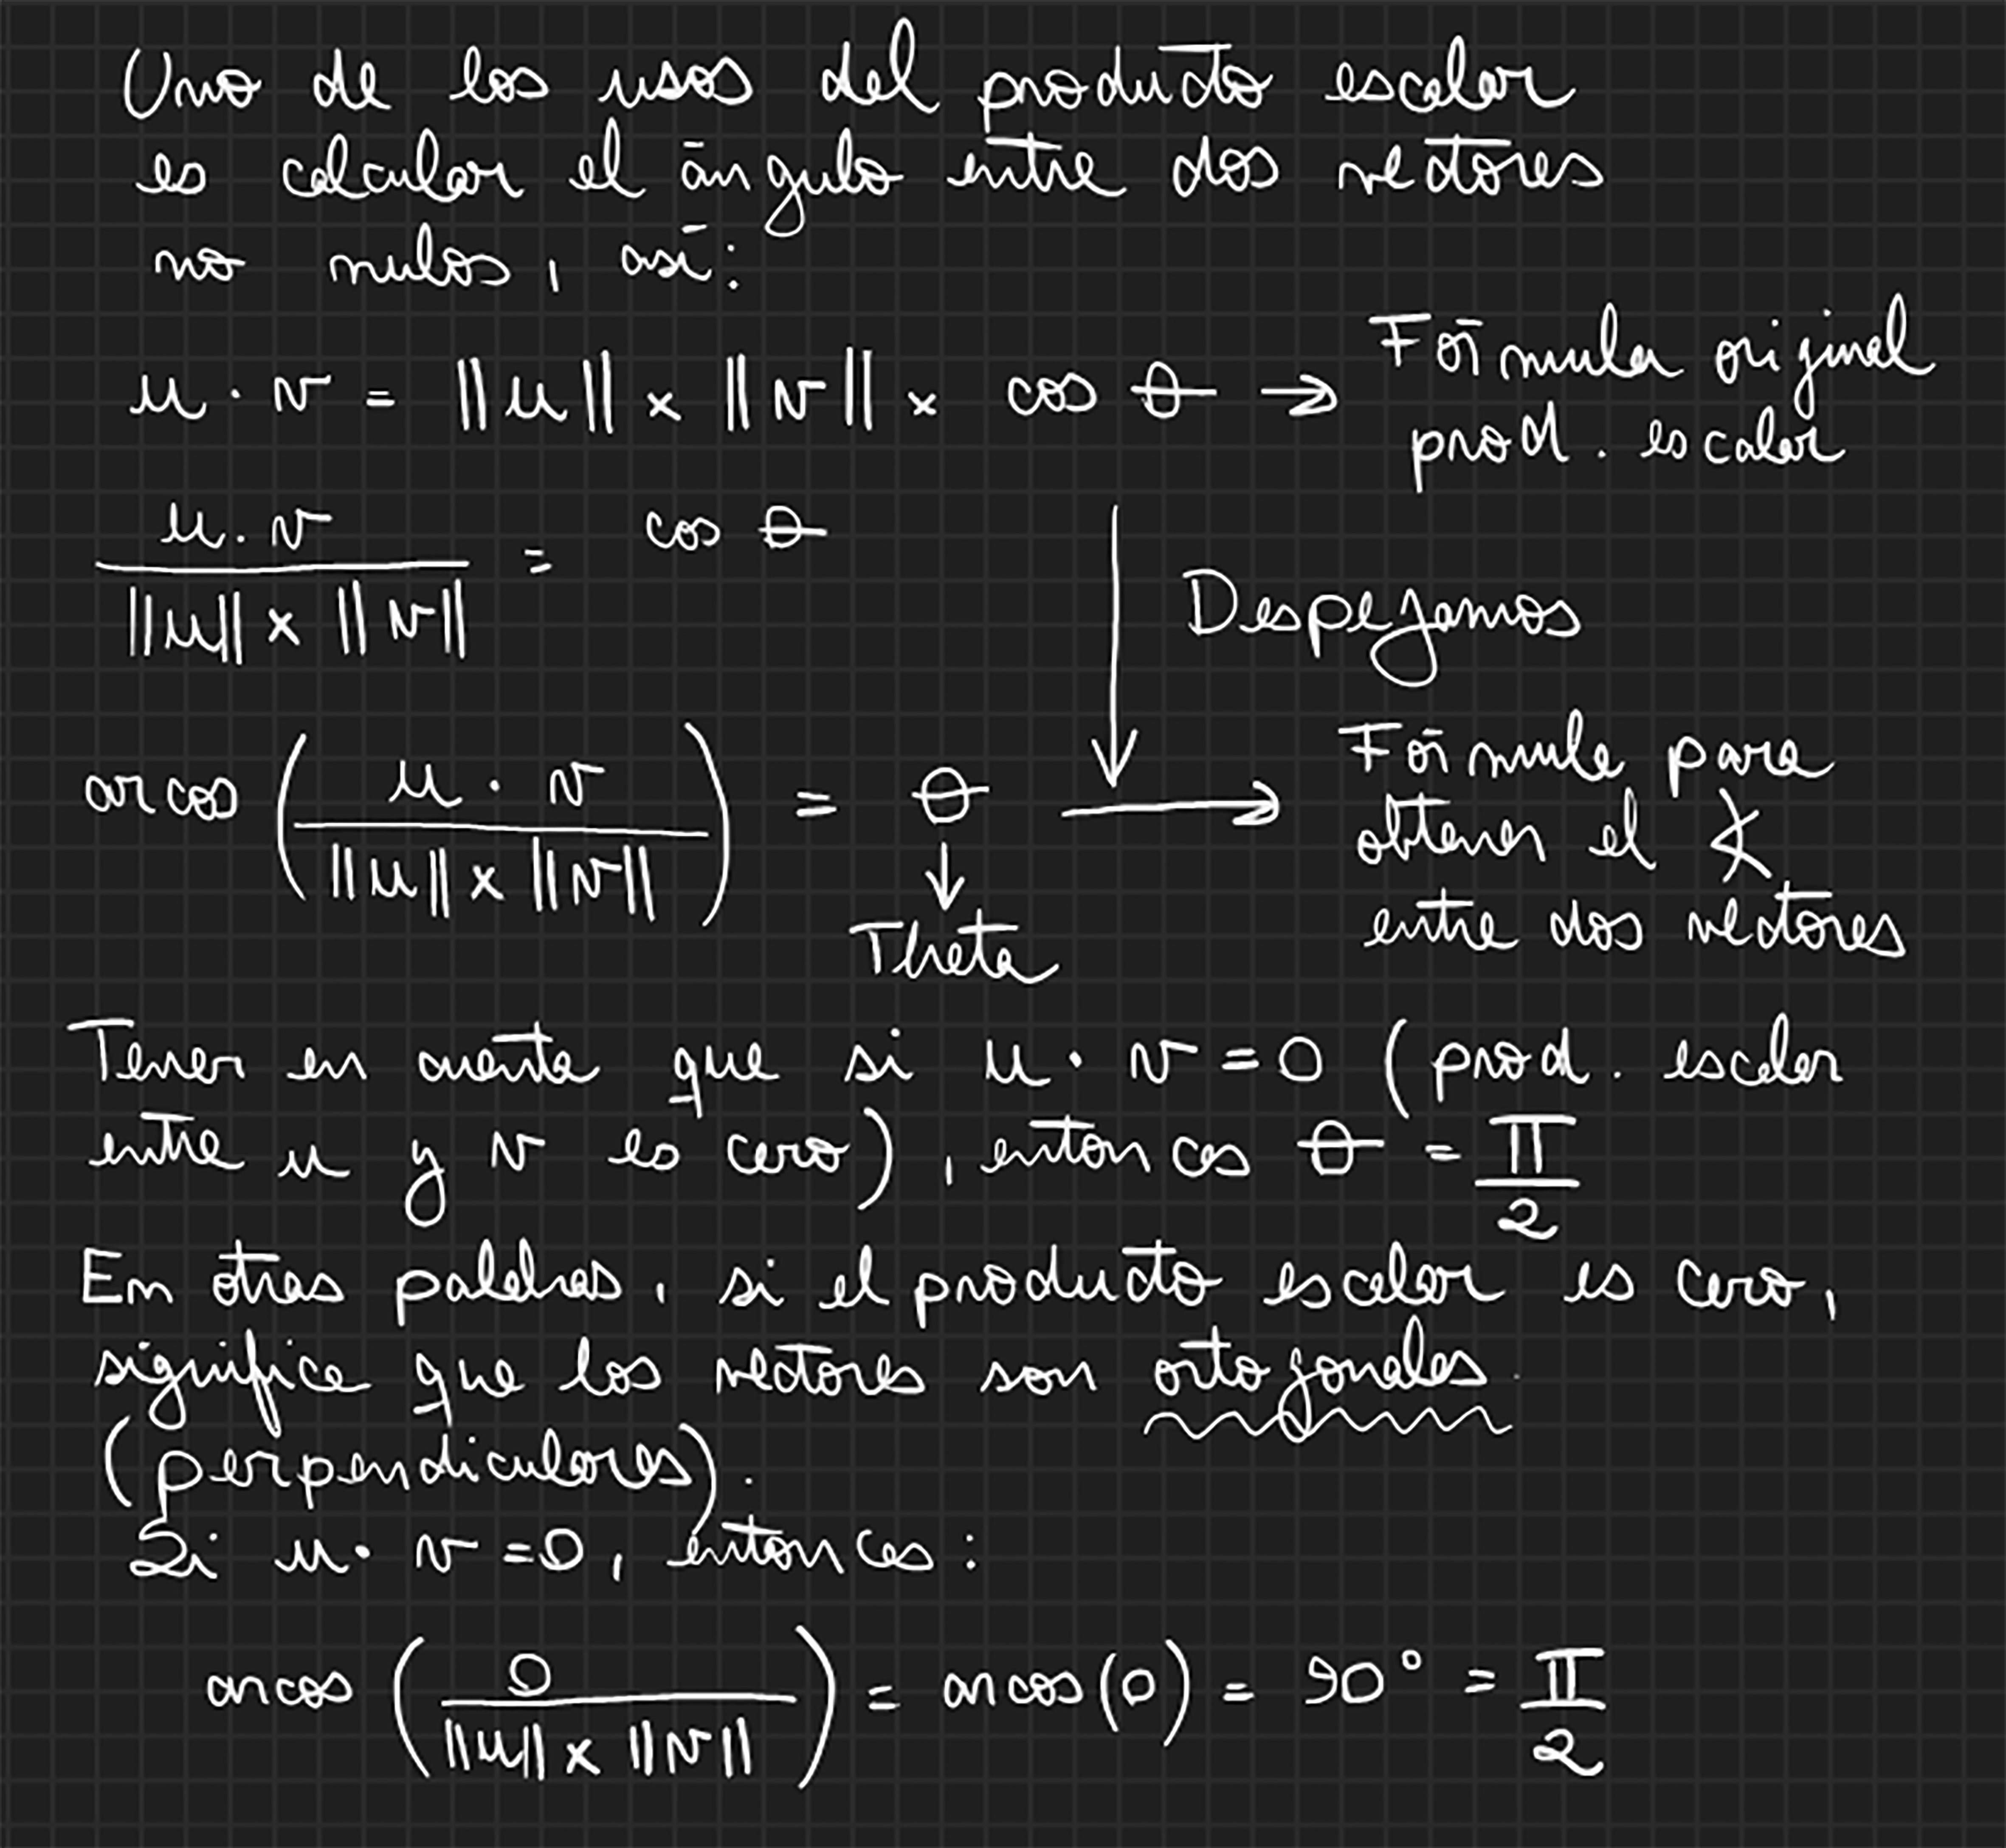 Uno de los usos del producto escalar
es calcular el ángulo entre dos vectores
no nulos, así:
u · v = ||u|| x ||v|| x cos θ → Fórmula original
prod. escalar
u · v / ||u|| x ||v|| = cos θ
Despejamos
arcos ( u · v / ||u|| x ||v|| ) = θ → Fórmula para
obtener el ∡
entre dos vectores
↓
Theta
Tener en cuenta que si u · v = 0 (prod. escalar
entre u y v es cero), entonces θ = π/2
En otras palabras, si el producto escalar es cero,
significa que los vectores son ortogonales.
(perpendiculares).
Si u · v = 0, entonces:
arcos ( 0 / ||u|| x ||v|| ) = arcos(0) = 90° = π/2